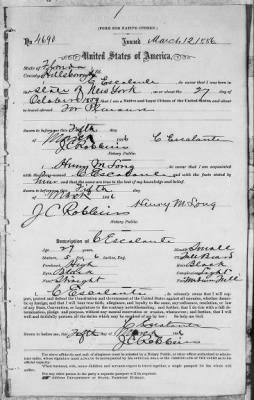 (FORM FOR NATIVE CITIZEN.)
No. 4690 Issued March 12, 1886
United States of America,
State of Florida
County Hillsborough
I, C Escalante, do swear that I was born in the
State of New York on or about the 27 day
of October; that I am a Native and Loyal Citizen of the United States and about
to travel abroad. For
Sworn to before me this Fifth
day of March 1886 C Escalante
J C Robbins
Notary Public.
I, Henry M Long, do swear that I am acquainted
with the C Escalante and with the facts stated by
him and that the same are true to the best of my knowledge and belief.
Sworn to before me this Fifth
day of March 1886
J C Robbins Henry M Long
Notary Public.
Description of C Escalante
Age: 27 years. Mouth: Small
Stature: 5 feet 6 inches, Eng. Chin: Full Beard
Forehead: High Hair: Black
Eyes: Black Complexion: Light
Nose: Straight Face: Medium Full
I, C Escalante, do solemnly swear that I will support, protect and defend the Constitution and Government of the United States against all enemies, whether domestic
or foreign; and that I will bear true faith, allegiance, and loyalty to the same, any ordinance, resolution, or law
of any State, Convention, or Legislature to the contrary notwithstanding; and further, that I do this with a full determination,
pledge, and purpose, without any mental reservation or evasion whatsoever; and further, that I will
well and faithfully perform all the duties which may be required of me by law. So help me God.
C Escalante
Sworn to before me, this Fifth day of March 1886
J C Robbins
Notary Public.